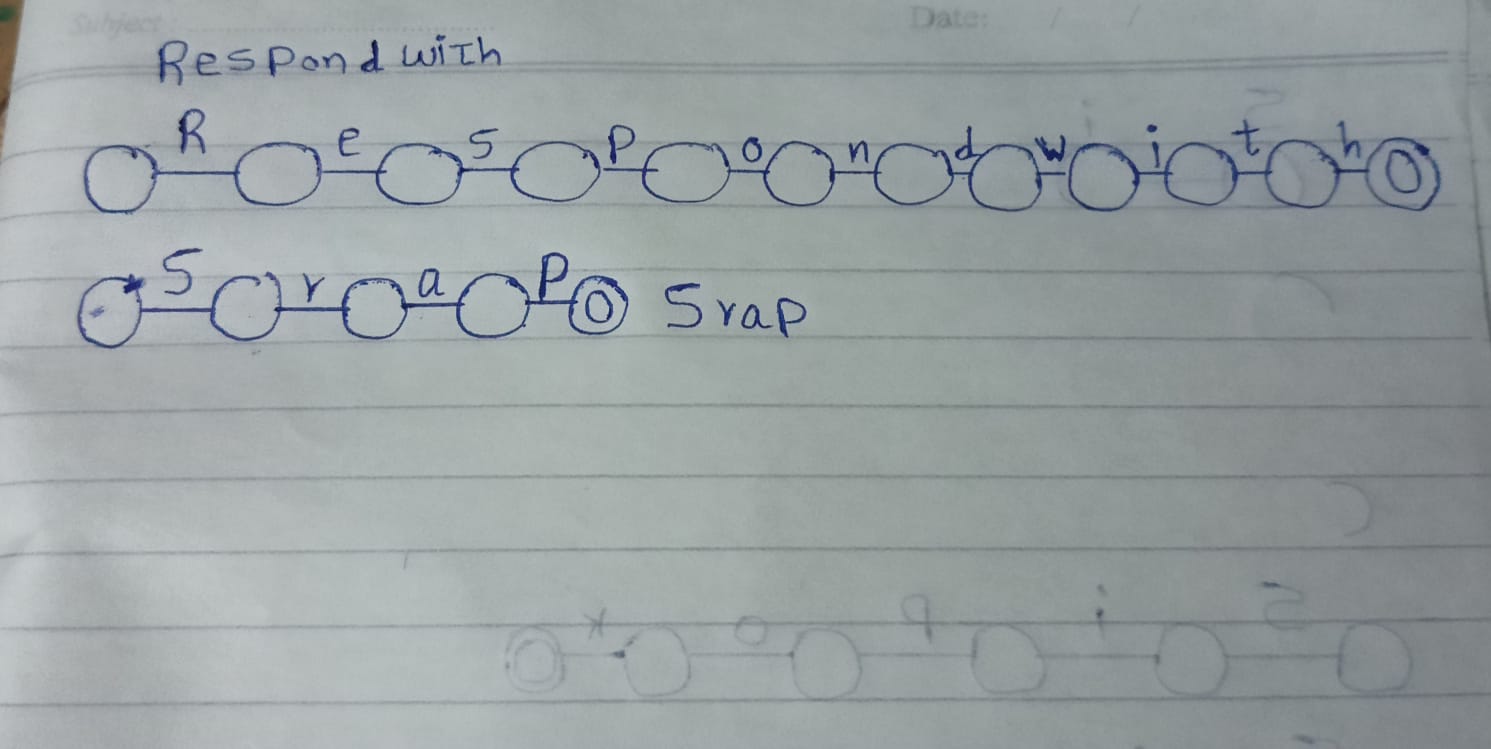 Subject:
Date: / /
Respond with
R e s p o n d w i t h
S r a p Srap